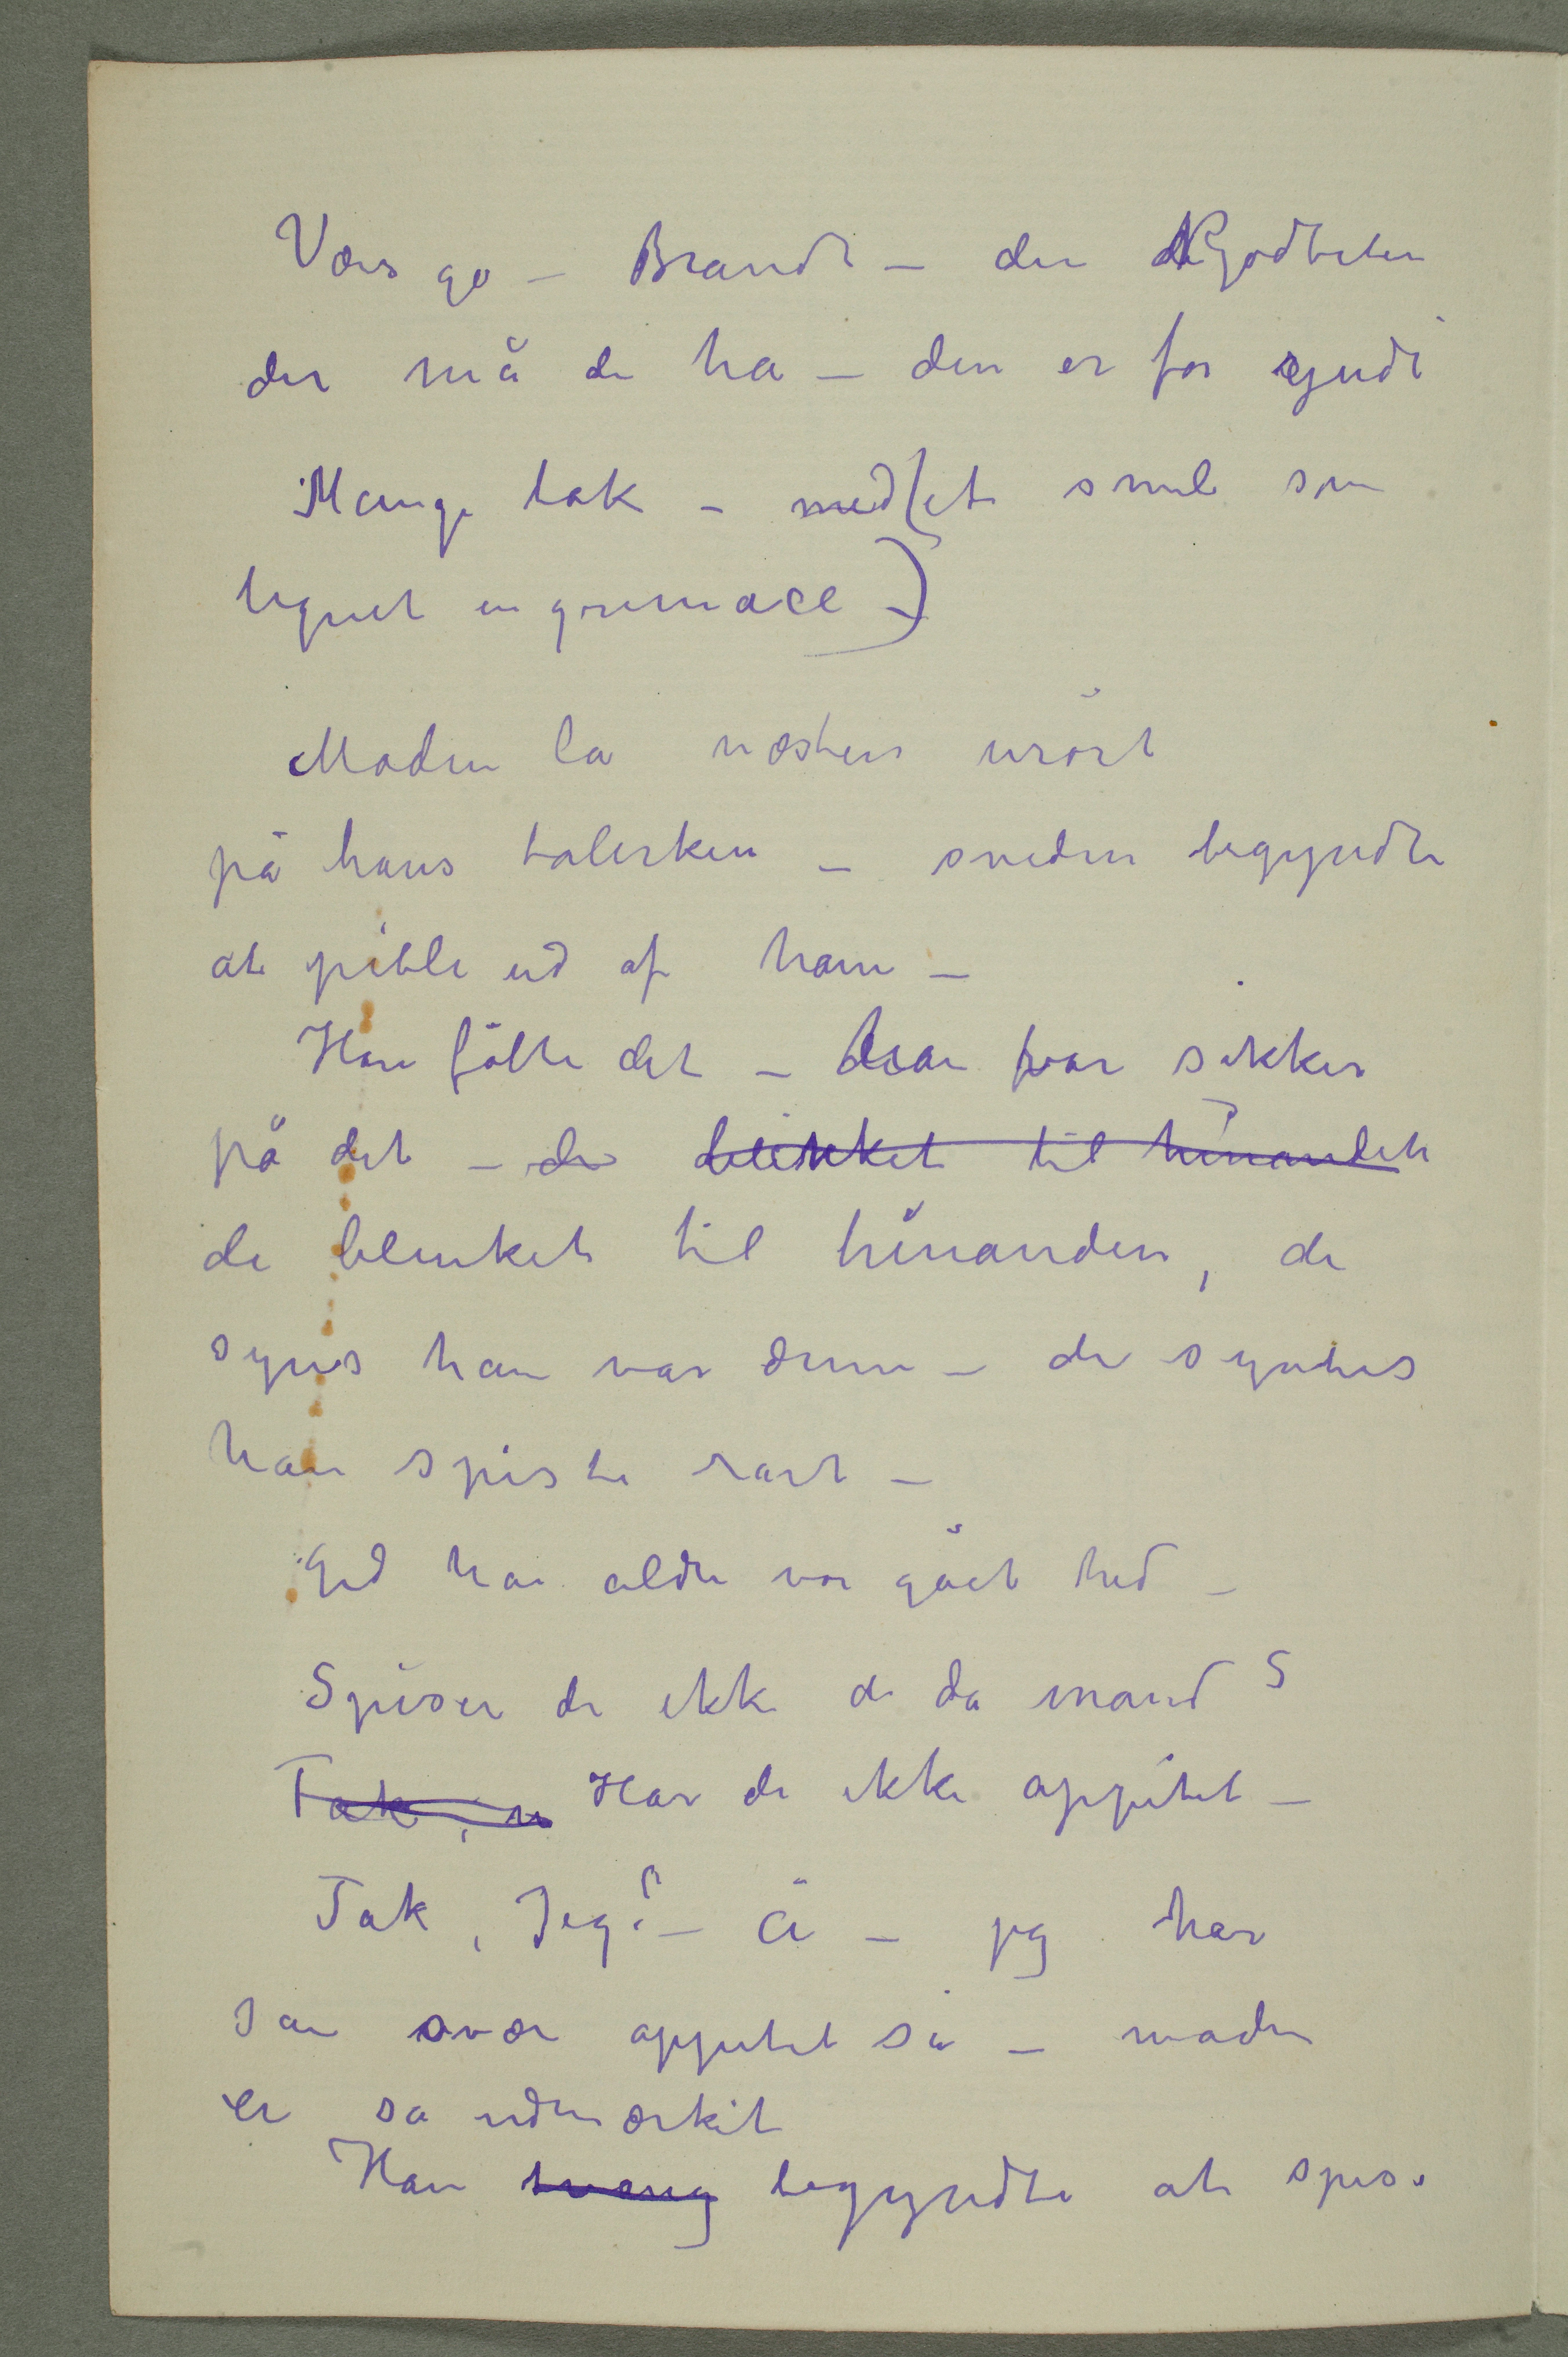 Værs go – Brandt – den Godbeten
der må de ha – den er for gudt
Mange tak – med (et smil som
lignet en grimace –)
Maden la næsten urört
på hans talerken – sveden begyndte
at pible ud af ham –
Han fölte det – han var sikker
på det – de blinket til hinanden
de blinket til hinanden, de
synes han var dum – de syntes
han spiste rart –
Gud han aldri var gået hid –
Spiser de ikke de da mand ?
Tak, n Har de ikke appitit –
Tak, Jeg? – Å – jeg har
san svær appitit så – maden
er så udmærkit
Han tvang begyndte at spise